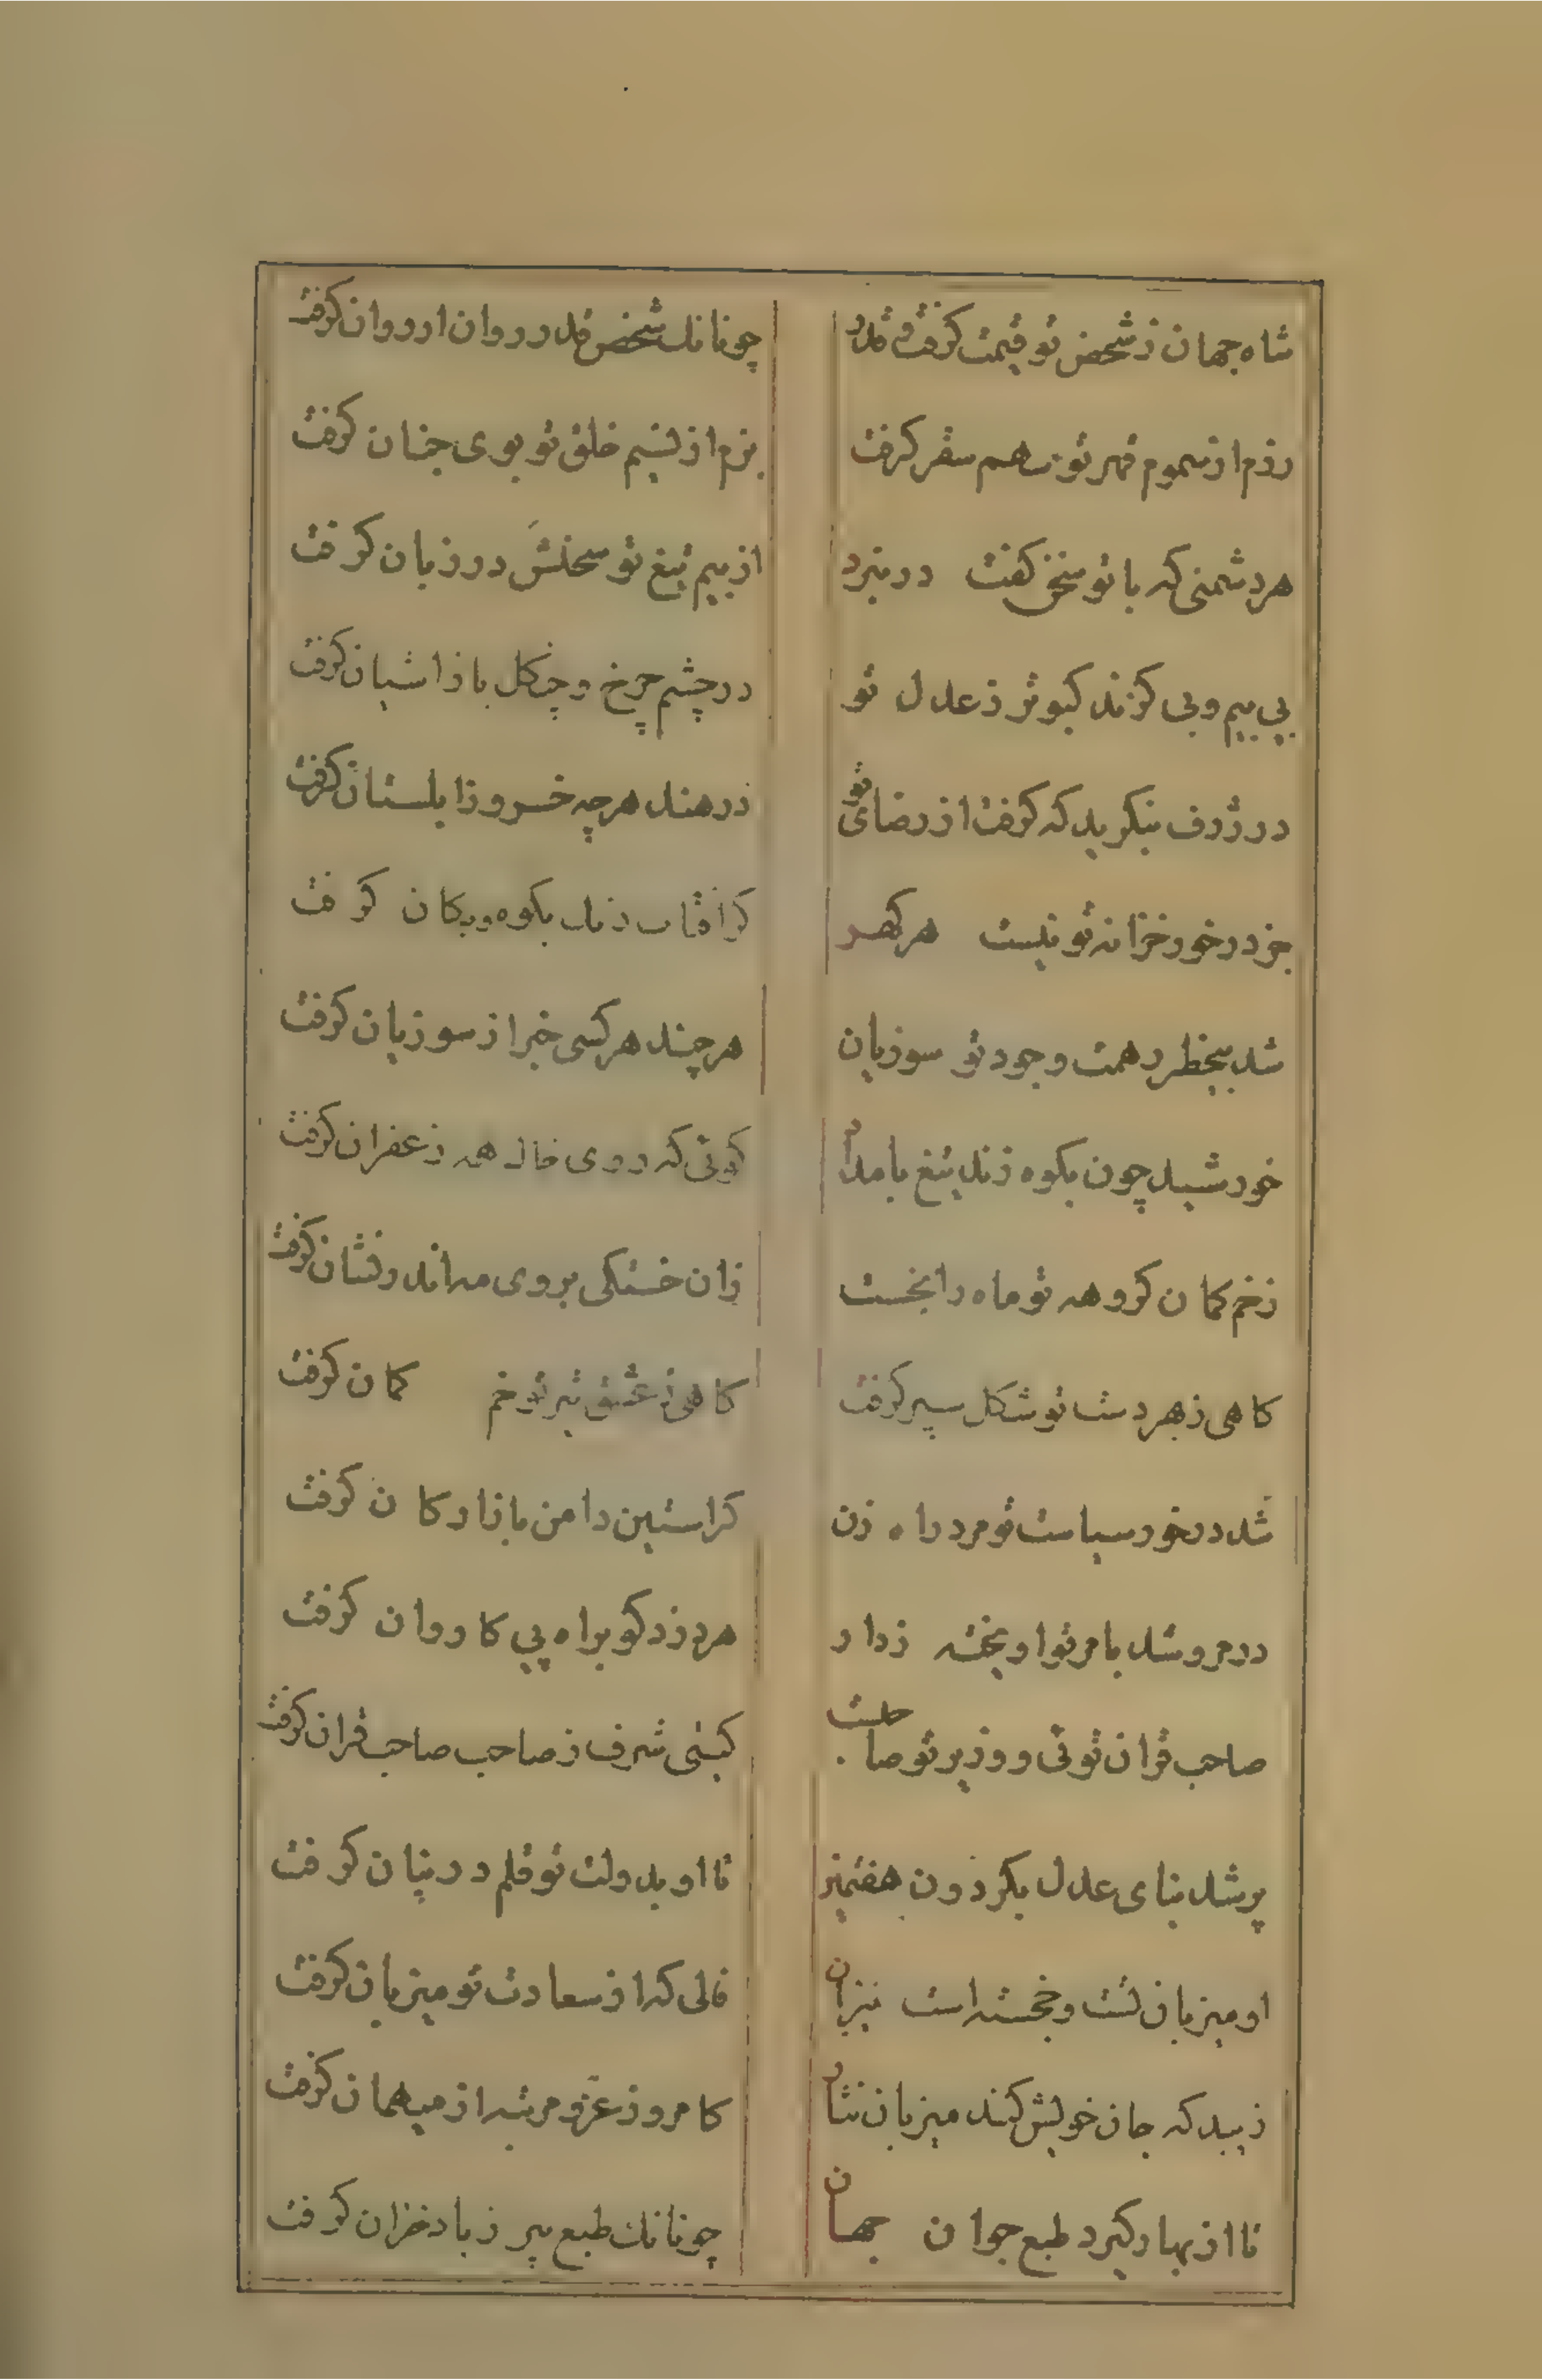 شاه جهان ز شخص تو قیمت کرفت و قدر چونانك شخص قدر و روان از روان کرفت
رزم از سموم قهر تو سهم سقر کرفت بزم از نسیم خلق تو بوی جنان کرفت
هر دشمنی که با تو سخن کفت در نبرد از بیم تیغ تو سخنش در زبان کرفت
بی بیم و بی کزند کبوتر ز عدل تو در چشم چرخ و چنکل باز اشیان کرفت
در ژرف بنکرید که کرفت از رضای تو در هند هرچه خسرو زابلستان کرفت
جز در خور خزانه تو نیست هر کهر کز افتاب رنك بکوه و بکان کرفت
شد بیخطر وجود تو سوزیان هر چند هر کسی خبر از سوزیان کرفت
خورشید چون بکوه زند تیغ بامداد کوئی که روی خاك همه زعفران کرفت
زخم کمان کروهه تو ماه را بخست زان خستکی بروی مه اندر نشان کرفت
کاهی ز بهر دست تو شکل سپر کرفت کاهی ز عشق تیر تو خم کمان کرفت
شد در خور سیاست تو مرد راه زن کراستین دامن بازارکان کرفت
در مرو شد بامر تو اویخته ز دار هر دزد کو براه پی کاروان کرفت
صاحب قران توئی و وزیر تو صاحبست کیتی شرف ز صاحب صاحب قران کرفت
پر شد بنای عدل بکردون هفتمین تا او بدولت تو قلم در بنان کرفت
او میزبان تست و خجسته است نیزبان فالی که از سعادت تو میزبان کرفت
زیبد که جان خویش کند میزبان نثار کامروز عز و مرتبه از میهمان کرفت
تا از بهار کیرد طبع جوان جهان چونانك طبع پیر ز باد خزان کرفت